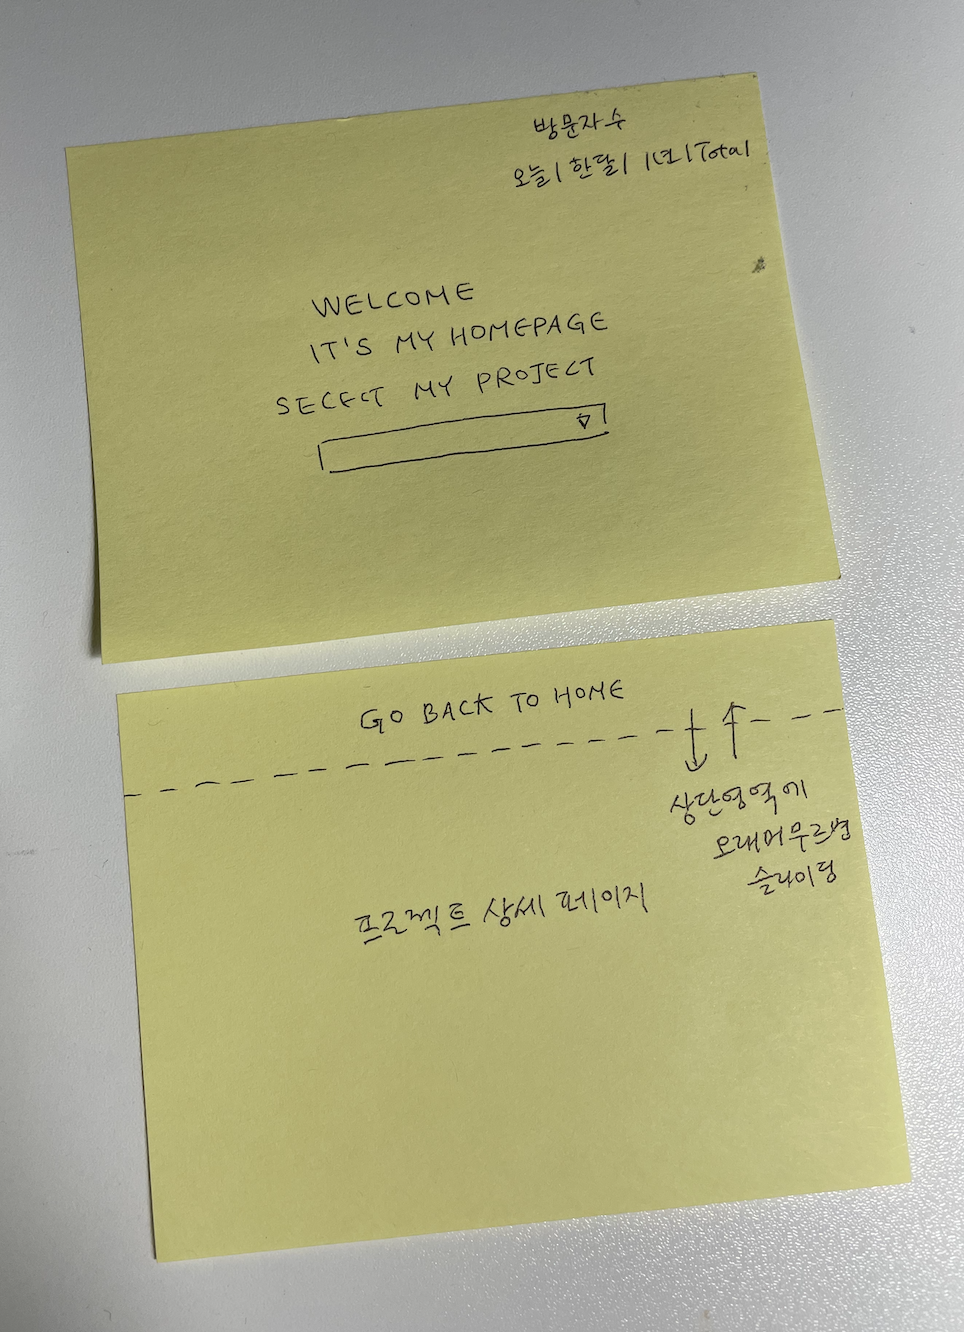 방문자수
오늘 | 한달 | 1년 | Total
WELCOME
IT'S MY HOMEPAGE
SECECT MY PROJECT
GO BACK TO HOME
상단영역에
오래머무르면
슬라이딩
프로젝트 상세 페이지